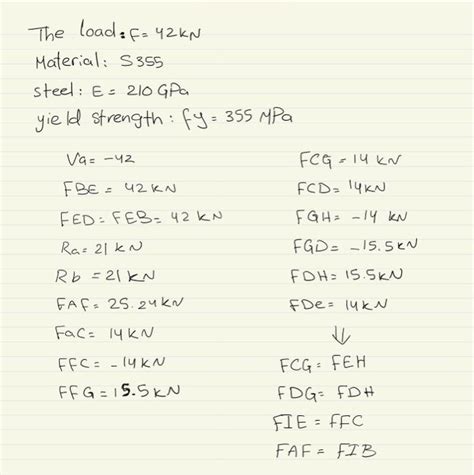 The load: F= 42kN
Material: S355
steel: E= 210 GPa
yield strength: fy= 355 MPa
Va= -42
FBE= 42KN
FED= FEB= 42 KN
Ra= 21 KN
Rb = 21 KN
FAF= 25.24KN
Fac= 14KN
FFC= -14KN
FFG= 15.5KN
FCG= 14 KN
FCD= 14KN
FGH= -14 KN
FGD= -15.5KN
FDH= 15.5KN
FDe= 14KN
⇓
FCG= FEH
FDG= FDH
FIE = FFC
FAF= FIB